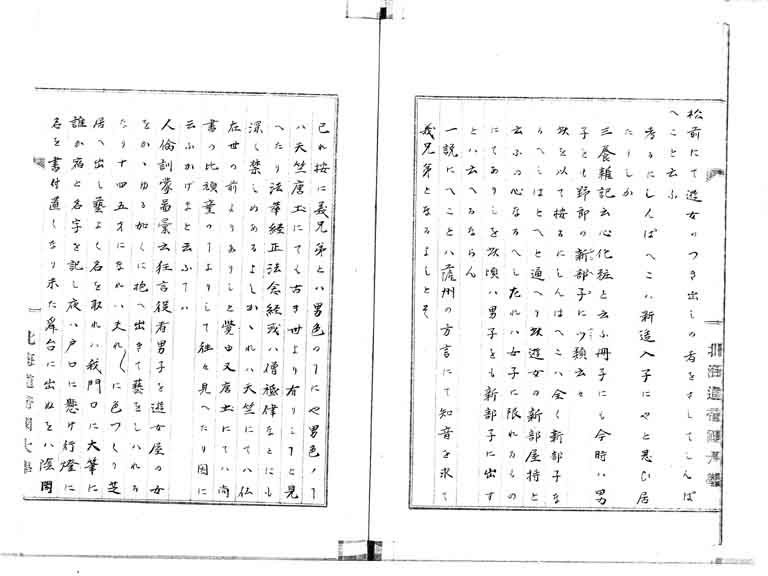 松前にて遊女のつき出しの者をさしてしんぱ
へこと云ふ
考るにしんぱへこハ新造入子にやと思ひ居
たりしか
三養雑記云心化粧と云ふ冊子にも今時ハ男
子とも野郎の新部子にツ類云々
此を以て按るにしんはへこハ全く新部子な
るへしはとへと通へり此遊女の新部屋持と
云ふの心なるへしたれハ女子に限れるもの
にてありしを此頃ハ男子をも新部子に出す
とハ云へるならん
一説にへことハ薩州の方言にて知音を求て
義兄弟となるよしとそ
北海道帝国大学
己れ按に義兄弟とハ男色のヿにや男色ノヿ
ハ天竺唐土にても古き世より有りしヿと見
へたり法華経正法念経或ハ僧祇律なとにも
深く禁しめあるよしかゝれハ天竺にてハ仏
在世の前よりありしと覚ゆ又唐土にてハ尚
書の比頑童のヿよりして往々見へたり因に
云ふかげまと云ふハ
人倫訓蒙図彙云狂言役者男子を遊女屋の女
をかゝゆる如くに抱へ出きて藝をしハれる
たり十四五才になれハ夫れ〳〵に色つくり芝
居へ出し藝よく名を取れハ我門口に大筆に
誰か宿と名字を記し夜ハ戸口に懸け行燈に
名を書付置くなり未た舞台に出ぬをハ陰間
北海道帝国大学